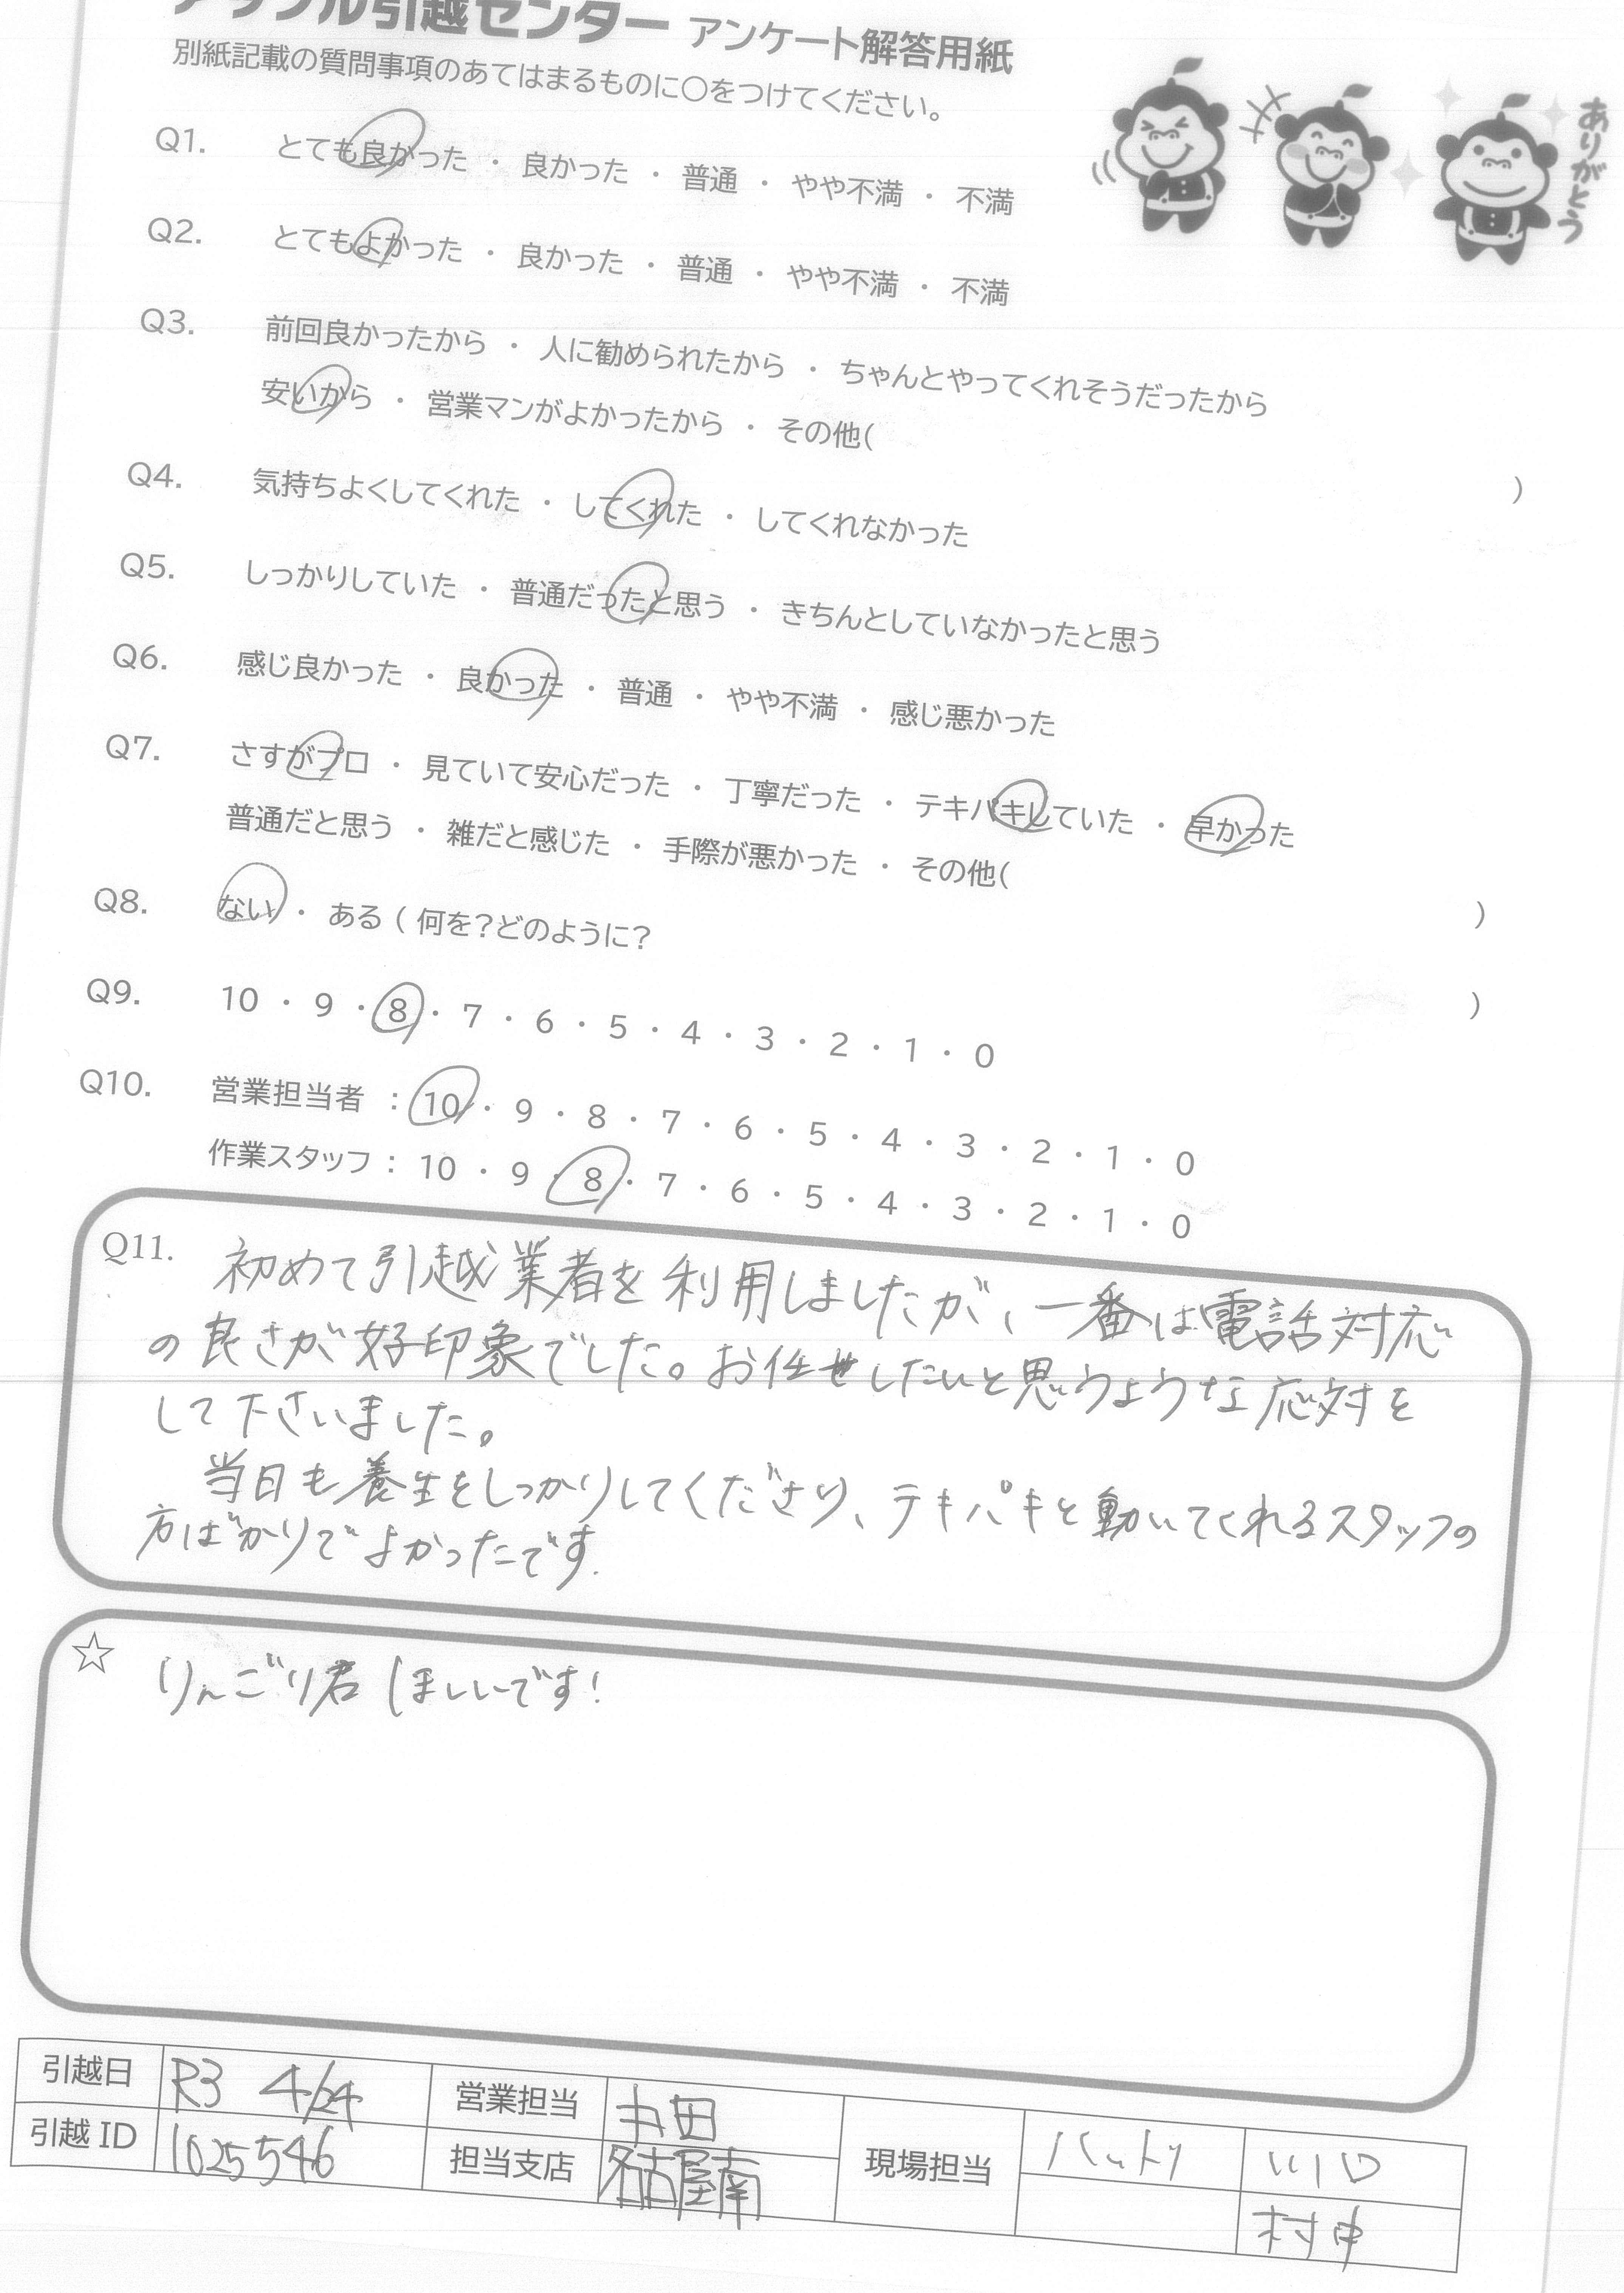 アップル引越センター アンケート解答用紙
別紙記載の質問事項のあてはまるものに○をつけてください。
ありがとう
Q1. とても良かった ・ 良かった ・ 普通 ・ やや不満 ・ 不満
Q2. とてもよかった ・ 良かった ・ 普通 ・ やや不満 ・ 不満
Q3. 前回良かったから ・ 人に勧められたから ・ ちゃんとやってくれそうだったから
安いから ・ 営業マンがよかったから ・ その他( )
Q4. 気持ちよくしてくれた ・ してくれた ・ してくれなかった
Q5. しっかりしていた ・ 普通だったと思う ・ きちんとしていなかったと思う
Q6. 感じ良かった ・ 良かった ・ 普通 ・ やや不満 ・ 感じ悪かった
Q7. さすがプロ ・ 見ていて安心だった ・ 丁寧だった ・ テキパキしていた ・ 早かった
普通だと思う ・ 雑だと感じた ・ 手際が悪かった ・ その他( )
Q8. ない ・ ある ( 何を?どのように? )
Q9. 10 ・ 9 ・ 8 ・ 7 ・ 6 ・ 5 ・ 4 ・ 3 ・ 2 ・ 1 ・ 0
Q10. 営業担当者 : 10 ・ 9 ・ 8 ・ 7 ・ 6 ・ 5 ・ 4 ・ 3 ・ 2 ・ 1 ・ 0
作業スタッフ : 10 ・ 9 ・ 8 ・ 7 ・ 6 ・ 5 ・ 4 ・ 3 ・ 2 ・ 1 ・ 0
Q11. 初めて引越業者を利用しましたが、一番は電話対応
の良さが好印象でした。お任せしたいと思うような応対を
して下さいました。
当日も養生をしっかりしてくださり、テキパキと動いてくれるスタッフの
方ばかりでよかったです.
☆ りんごり君ほしいです!
引越日 R3 4/24 営業担当 丸田 現場担当 ハットリ 川口
引越ID 1025546 担当支店 名古屋南 村中